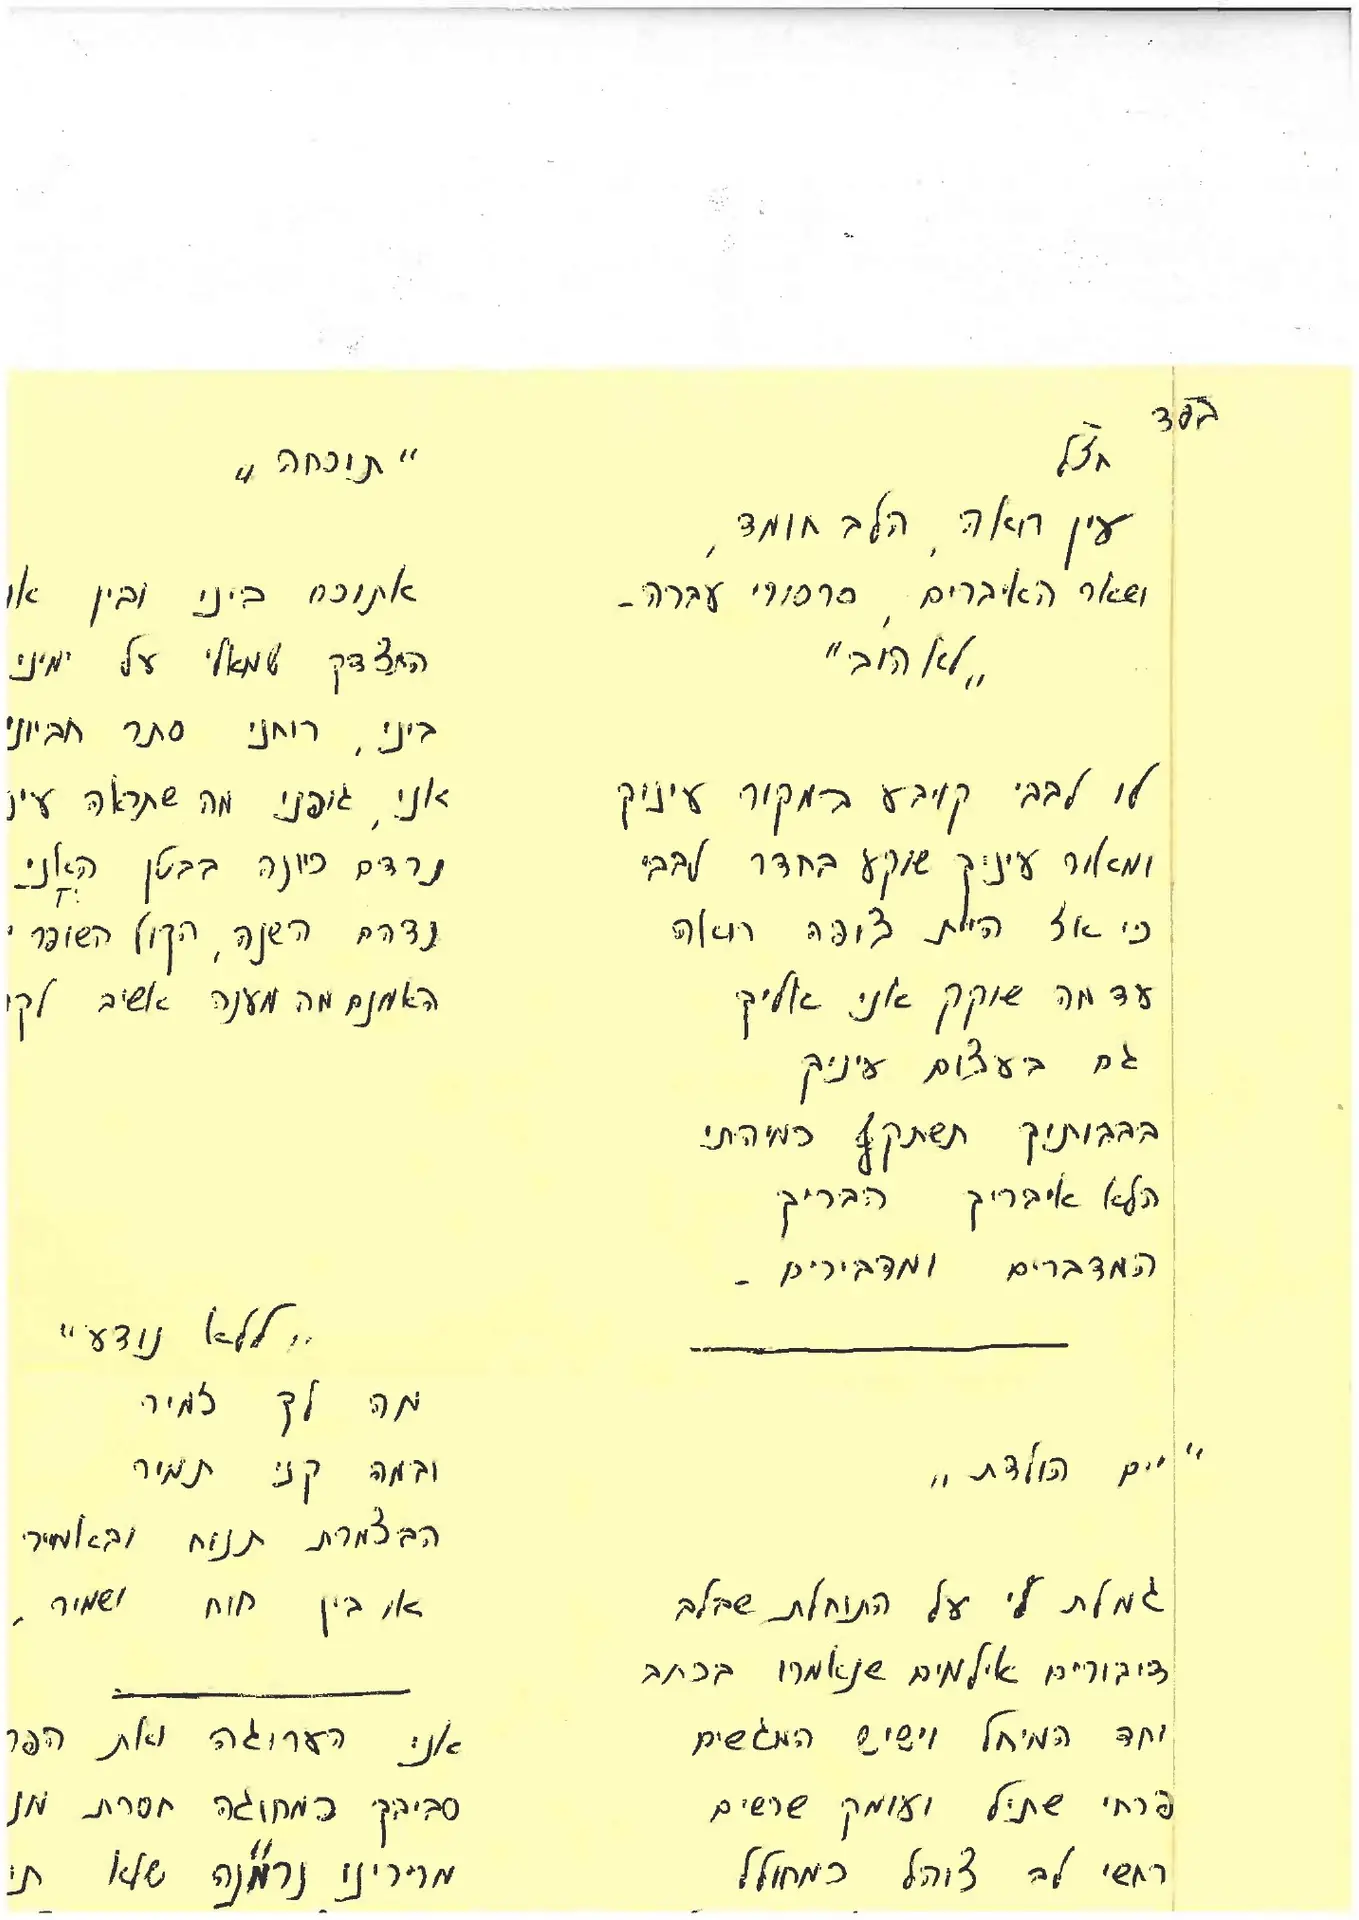 בסד
חצל
עין רואה, הלב חומד,
ושאר האיברים, סרסורי עברה-
„לא הוב"
לו לבבי קויבע במקור עיניך
ומאור עיניך שוקע בחדר לבבי
כי אז היית צופה רואה
עד מה שוקק אני אליך
גם בעצום עיניך
בבבותיך תשתקף כמיהתי
הלא איבריך הבריך
המדברים ומדבירים -
"יום הולדת„
גמלת לי על התוחלת שבלב
דיבורים אילמים שנאמרו בכתב
וחד המיחל וישיש המגשים
פרחי שתיל ועומק שרשים
רחשי לב צוהל כמחולל
"תוכחה„
אתוכח ביני ובין או
התצדק שמאלי על ימיני
ביני, רוחני סתר חביוני
אני, גופני מה שתראה עינ
נרדם כיונה בבטן האני-
נדהם השנה, הקול השופר י
האמנם מה מענה אשיב לקו
„ללא נודע"
מה לך זמיר
ובמה קני תמיר
הבצמרת תנוח ובאמיר
או בין חוח ושמיר,
אני הערוגה ואת הפר
סביבך כמחוגה חסרת מנ
מרירינו נרמנה שלא תי